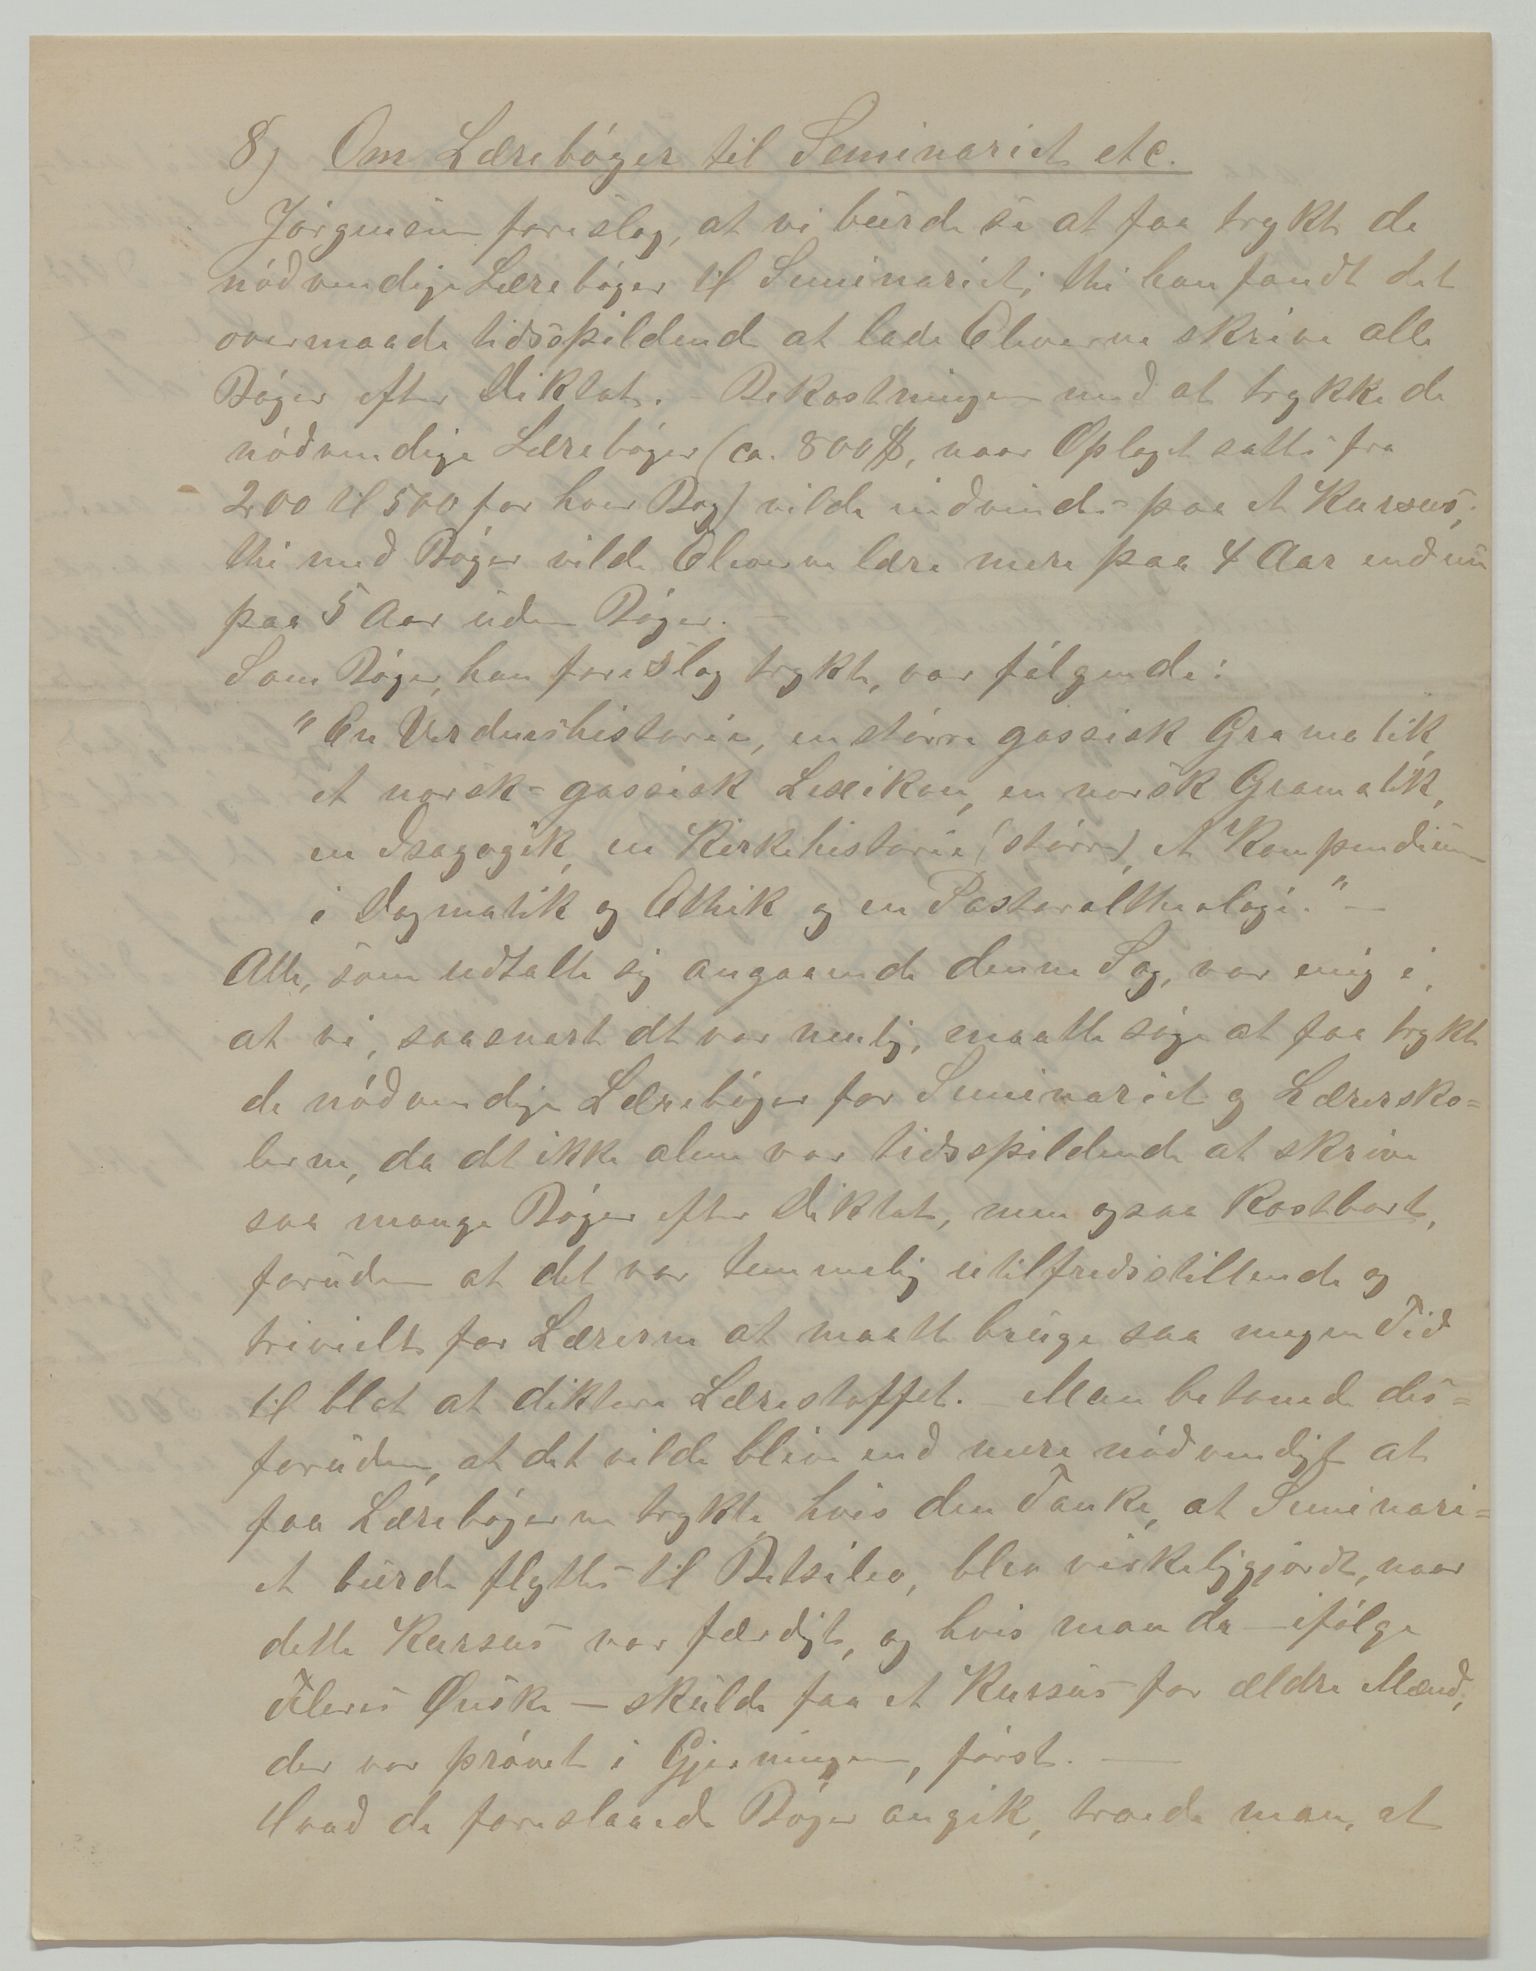 8) Om Lærebøger til Seminariet etc.
Jørgensen foreslog, at vi burde se at faa trykt de
nødvendige Lærebøger til Seminariet; thi han fandt det
overmaade tidsspildende at lade Eleverne skrive alle
Bøger efter Diktat. – Bekostningen med at trykke de
nødvendige Lærebøger (ca. 800 $, naar Oplaget sattes fra
200 til 500 for hver Bog) vilde indvindes paa et Kursus;
thi med Bøger vilde Eleverne lære mere paa 4 Aar end nu
paa 5 Aar uden Bøger. –
Som Bøger, han foreslog trykt, var følgende:
"En Verdenshistorie, en større gassisk Gramatik,
et norsk-gassisk Lexikon, en norsk Gramatik,
en Isagogik, en Kirkehistorie (større), et Kompendium
i Dogmatik og Ethik og en Pastoraltheologi." –
Alle, som udtalte sig angaaende denne Sag, var enig i,
at vi, saasnart det var mulig, maatte søge at faa trykt
de nødvendige Lærebøger for Seminariet og Lærersko-
lerne, da det ikke alene var tidsspildende at skrive
saa mange Bøger efter Diktat, men ogsaa kostbart,
foruden at det var temmelig utilfredsstillende og
trivielt for Lærerne at maatte bruge saa megen Tid
til blot at diktere Lærestoffet. – Man betonede des-
foruden, at det vilde blive end mere nødvendigt at
faa Lærebøgerne trykte, hvis den Tanke, at Seminari-
et burde flyttes til Betsileo, blev virkeliggjordt, naar
dette Kursus var færdigt, og hvis man da – ifølge
Fleres Ønske – skulde faa et Kursus for ældre Mænd,
der var prøvet i Gjerningen, først. –
Hvad de foreslaaede Bøger angik, troede man, at